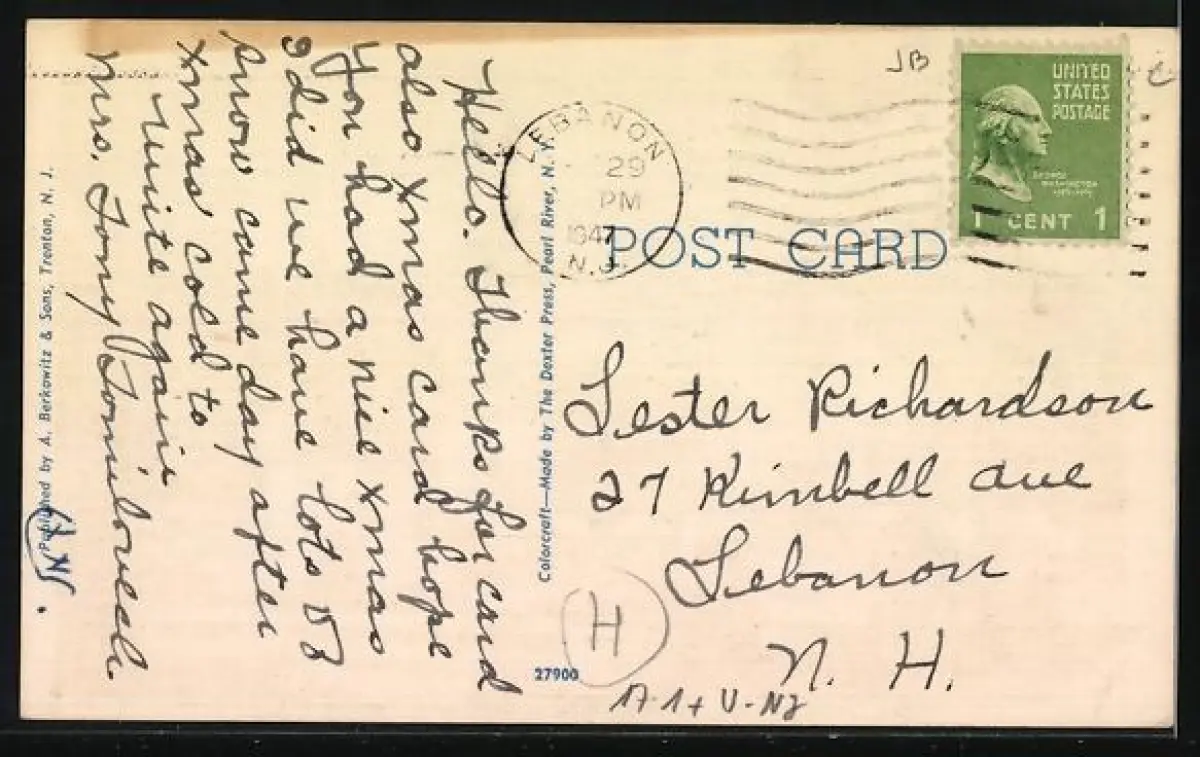 Hello. Thanks for card
also Xmas card hope
You had a nice Xmas
I did we have lots of
snow came day after
Xmas cold to
Write again
Mrs. Tony
Published by A. Berkowitz & Sons, Trenton, N. J.
Colorcraft—Made by The Dexter Press, Pearl River, N. Y.
27900
LEBANON
29
PM
1947
N.J.
JB
UNITED
STATES
POSTAGE
GEORGE
WASHINGTON
1 CENT 1
POST CARD
Lester Richardson
27 Kimbell Ave
Lebanon
N. H.
H